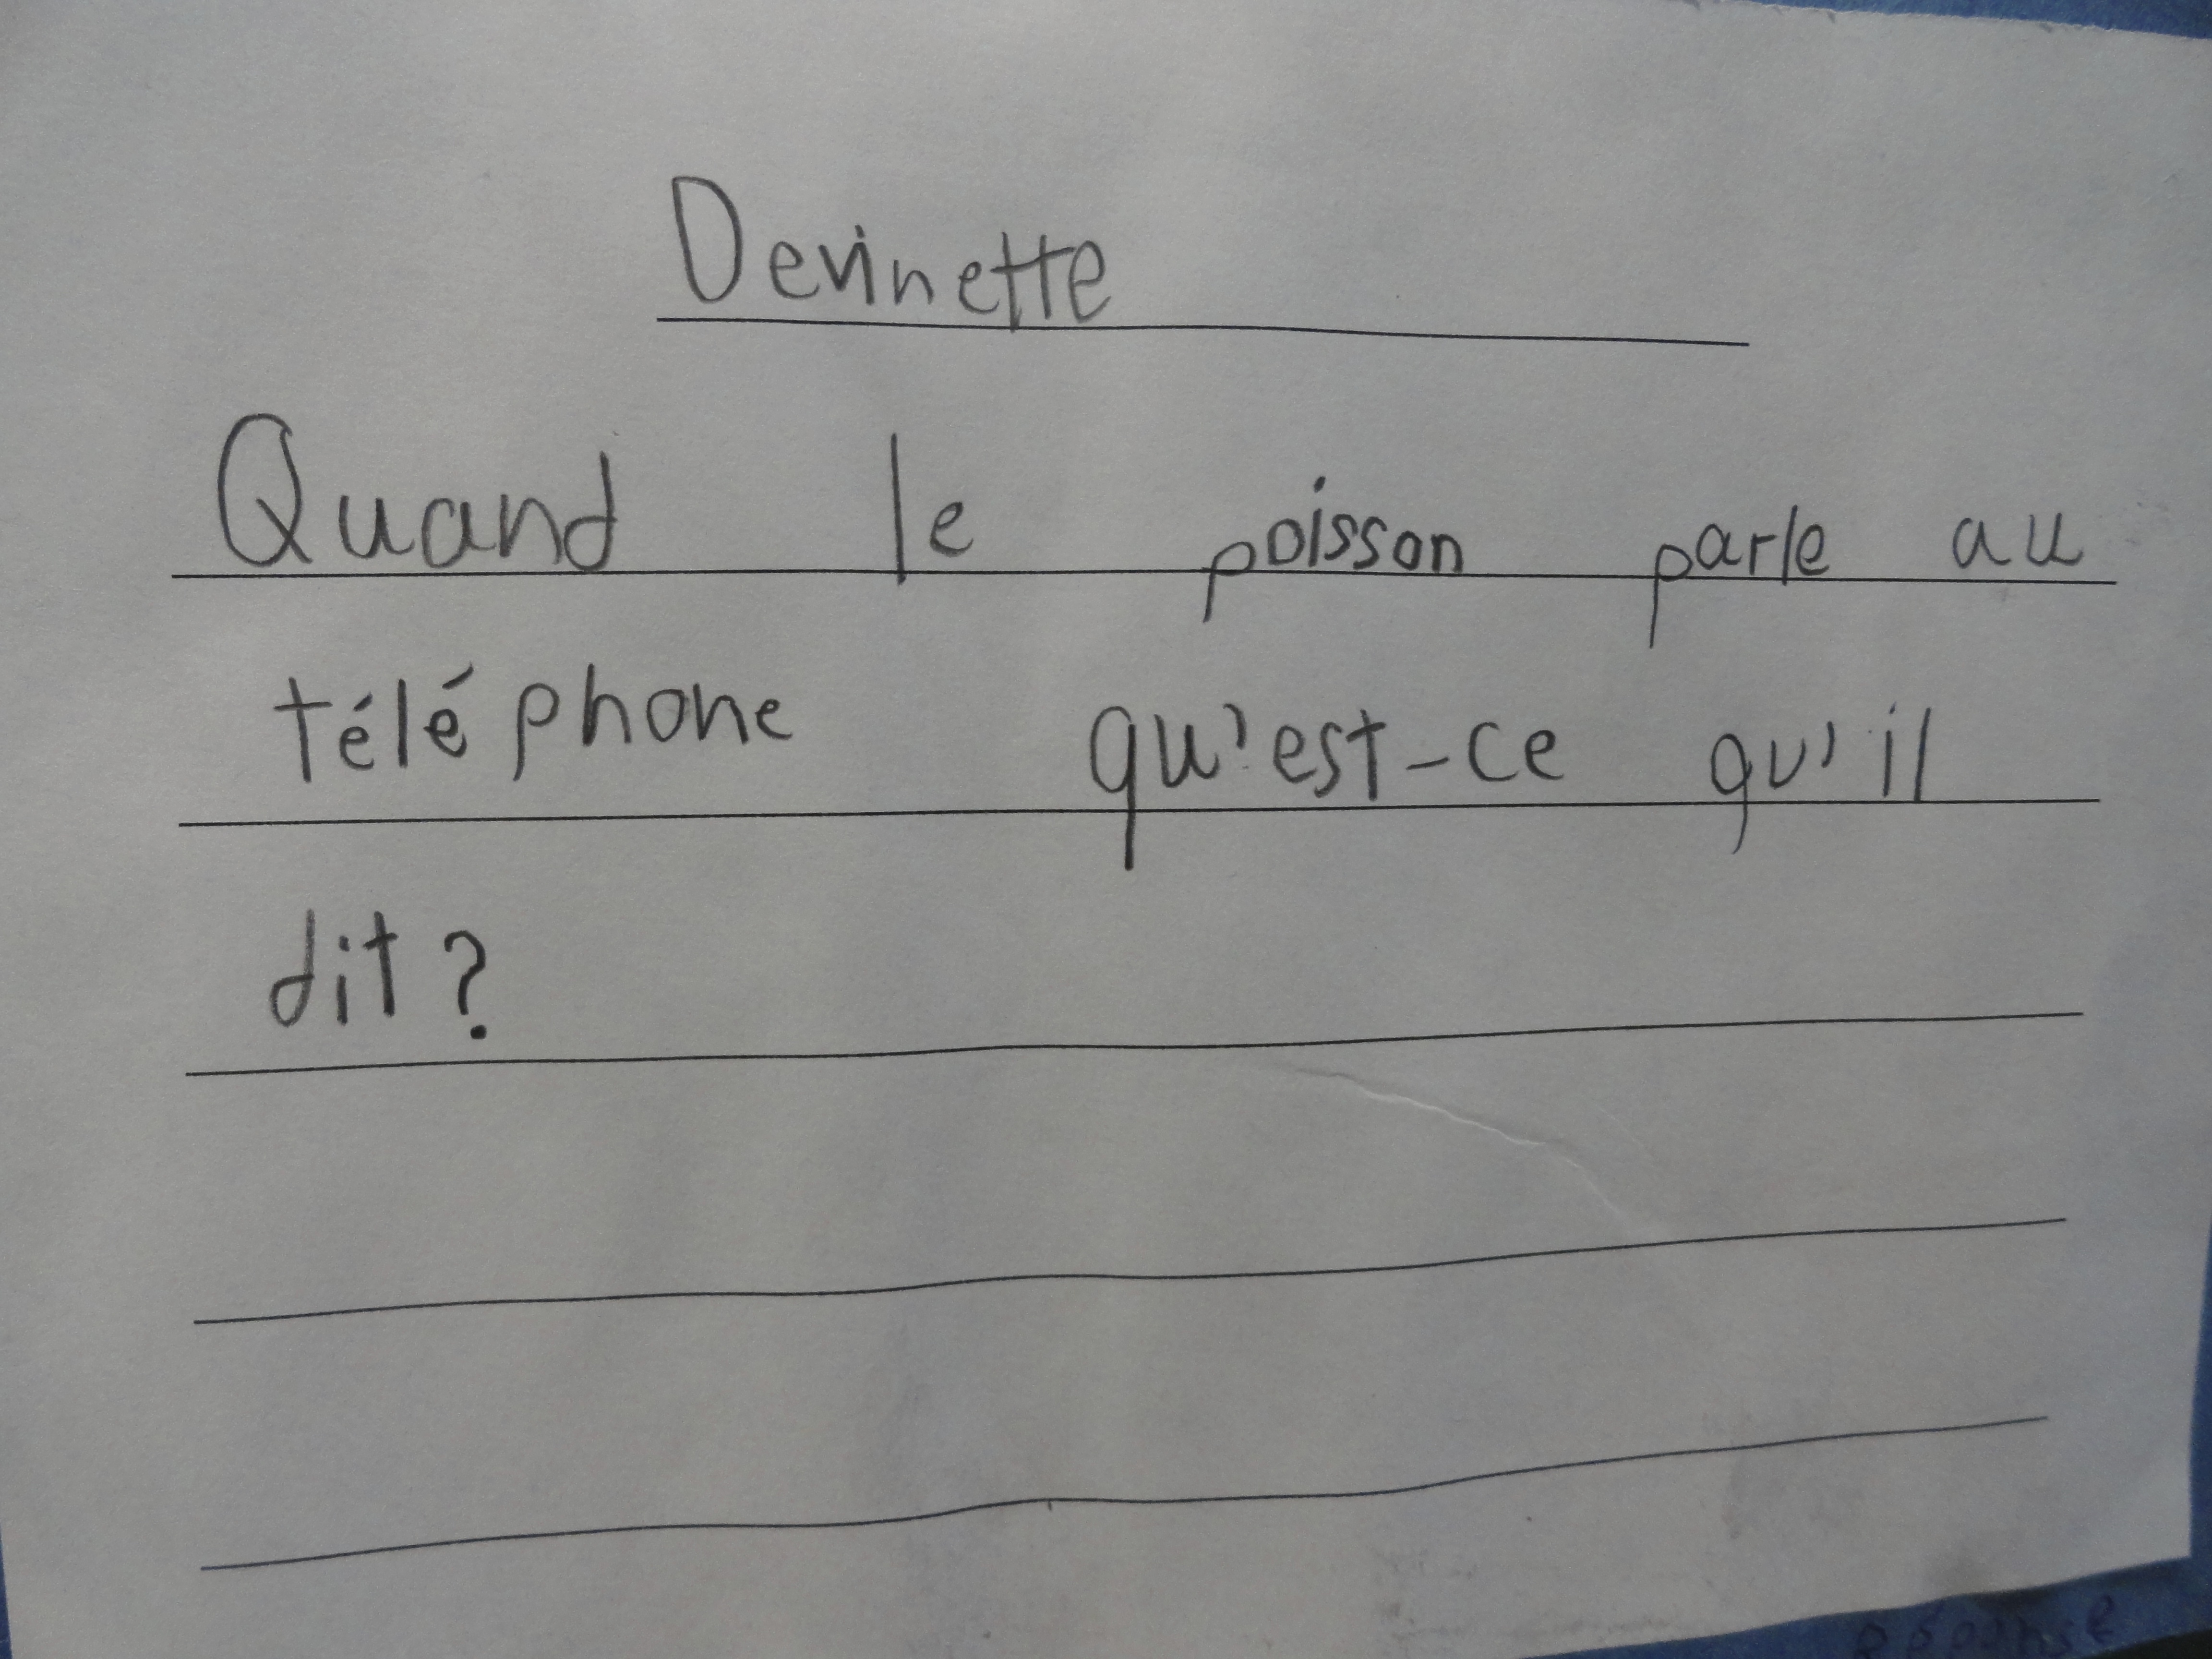 Devinette
Quand le poisson parle au
téléphone qu'est-ce qu'il
dit?